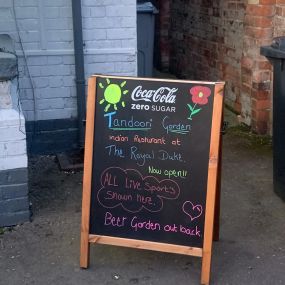 Coca-Cola
zero SUGAR
Tandoori Garden
indian Restaurant at
The Royal Duke.
Now open!!
ALL Live Sports
Shown Here.
Beer Garden out back.